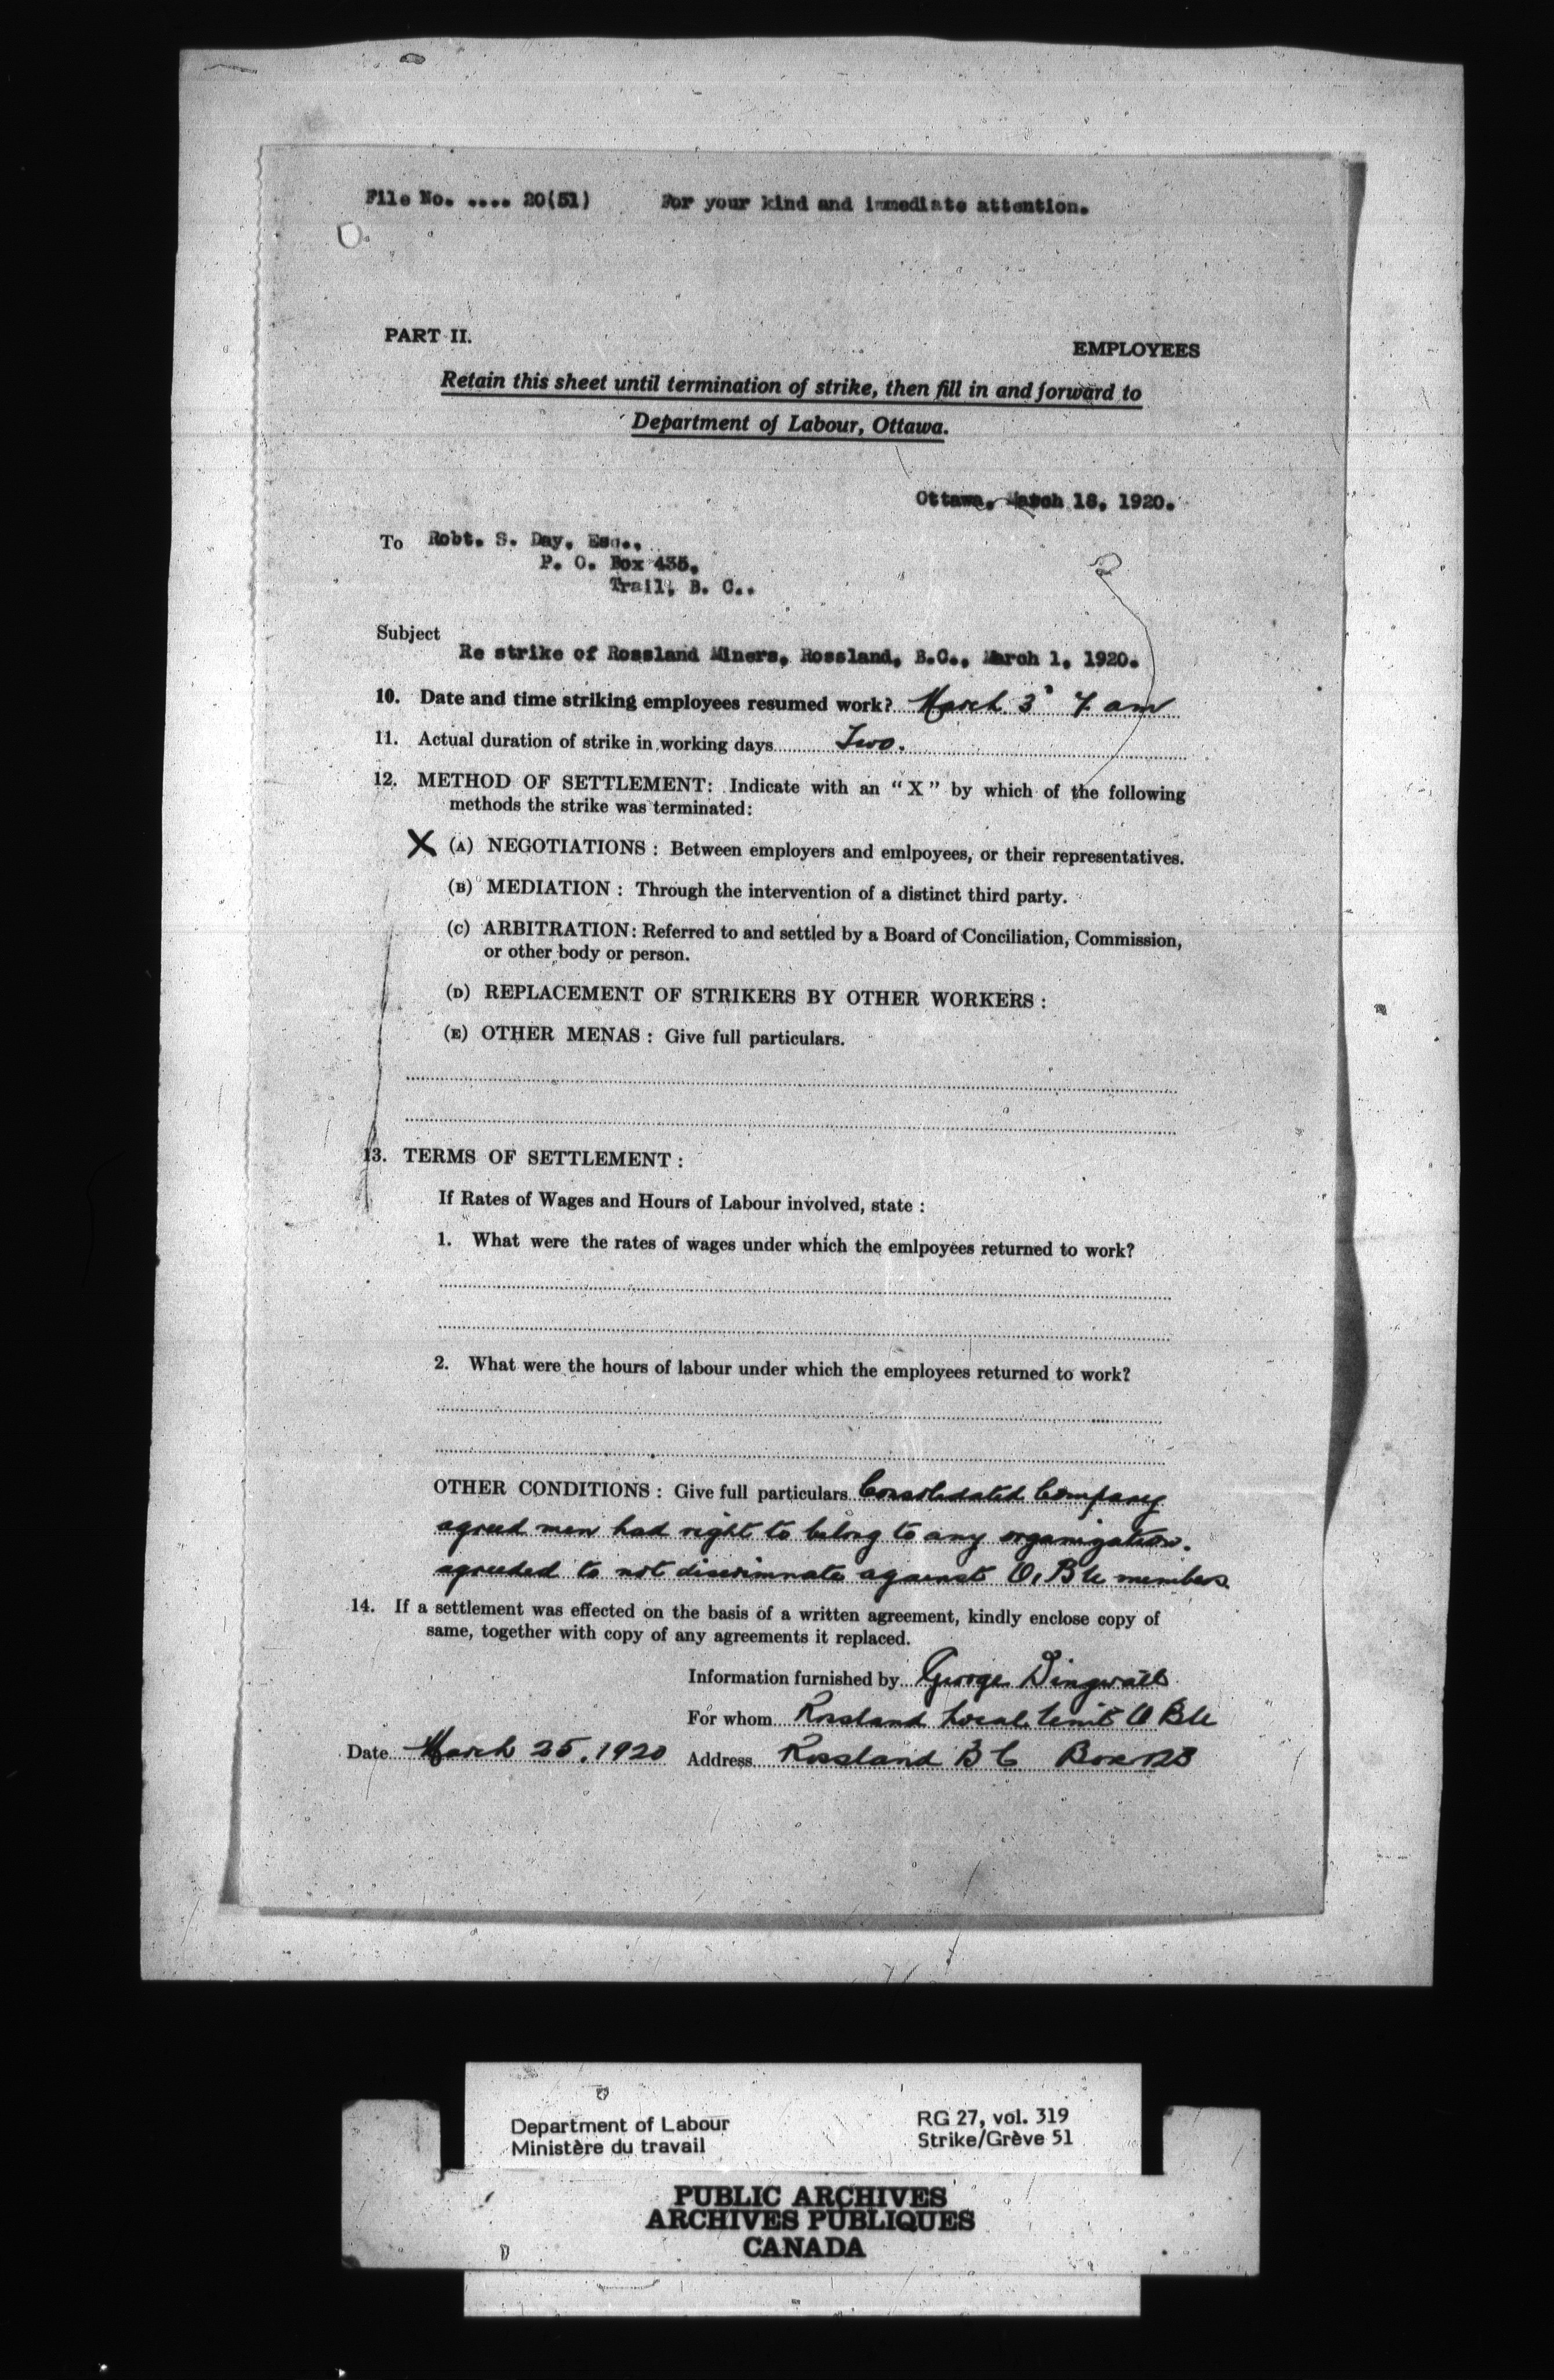 File No. .... 20(51) For your kind and immediate attention.
PART II.
EMPLOYEES
Retain this sheet until termination of strike, then fill in and forward to
Department of Labour, Ottawa.
Ottawa, March 18, 1920.
To Robt. S. Day, Esq.,
P. O. Box 435,
Trail, B. C..
Subject
Re strike of Rossland Miners, Rossland, B.C., March 1, 1920.
10. Date and time striking employees resumed work? March 3 7 am
11. Actual duration of strike in working days Two.
12. METHOD OF SETTLEMENT: Indicate with an "X" by which of the following
methods the strike was terminated:
X (A) NEGOTIATIONS: Between employers and emlpoyees, or their representatives.
(B) MEDIATION: Through the intervention of a distinct third party.
(C) ARBITRATION: Referred to and settled by a Board of Conciliation, Commission,
or other body or person.
(D) REPLACEMENT OF STRIKERS BY OTHER WORKERS:
(E) OTHER MENAS: Give full particulars.
13. TERMS OF SETTLEMENT:
If Rates of Wages and Hours of Labour involved, state:
1. What were the rates of wages under which the emlpoyees returned to work?
2. What were the hours of labour under which the employees returned to work?
OTHER CONDITIONS: Give full particulars Consolidated Company
agreed men had right to belong to any organization.
agreeded to not discrimnate against O. B U members
14. If a settlement was effected on the basis of a written agreement, kindly enclose copy of
same, together with copy of any agreements it replaced.
Information furnished by George Dingwall
For whom Rossland Local Unit O B U
Date March 25, 1920 Address Rossland B C Box
Department of Labour RG 27, vol. 319
Ministère du travail Strike/Grève 51
PUBLIC ARCHIVES
ARCHIVES PUBLIQUES
CANADA